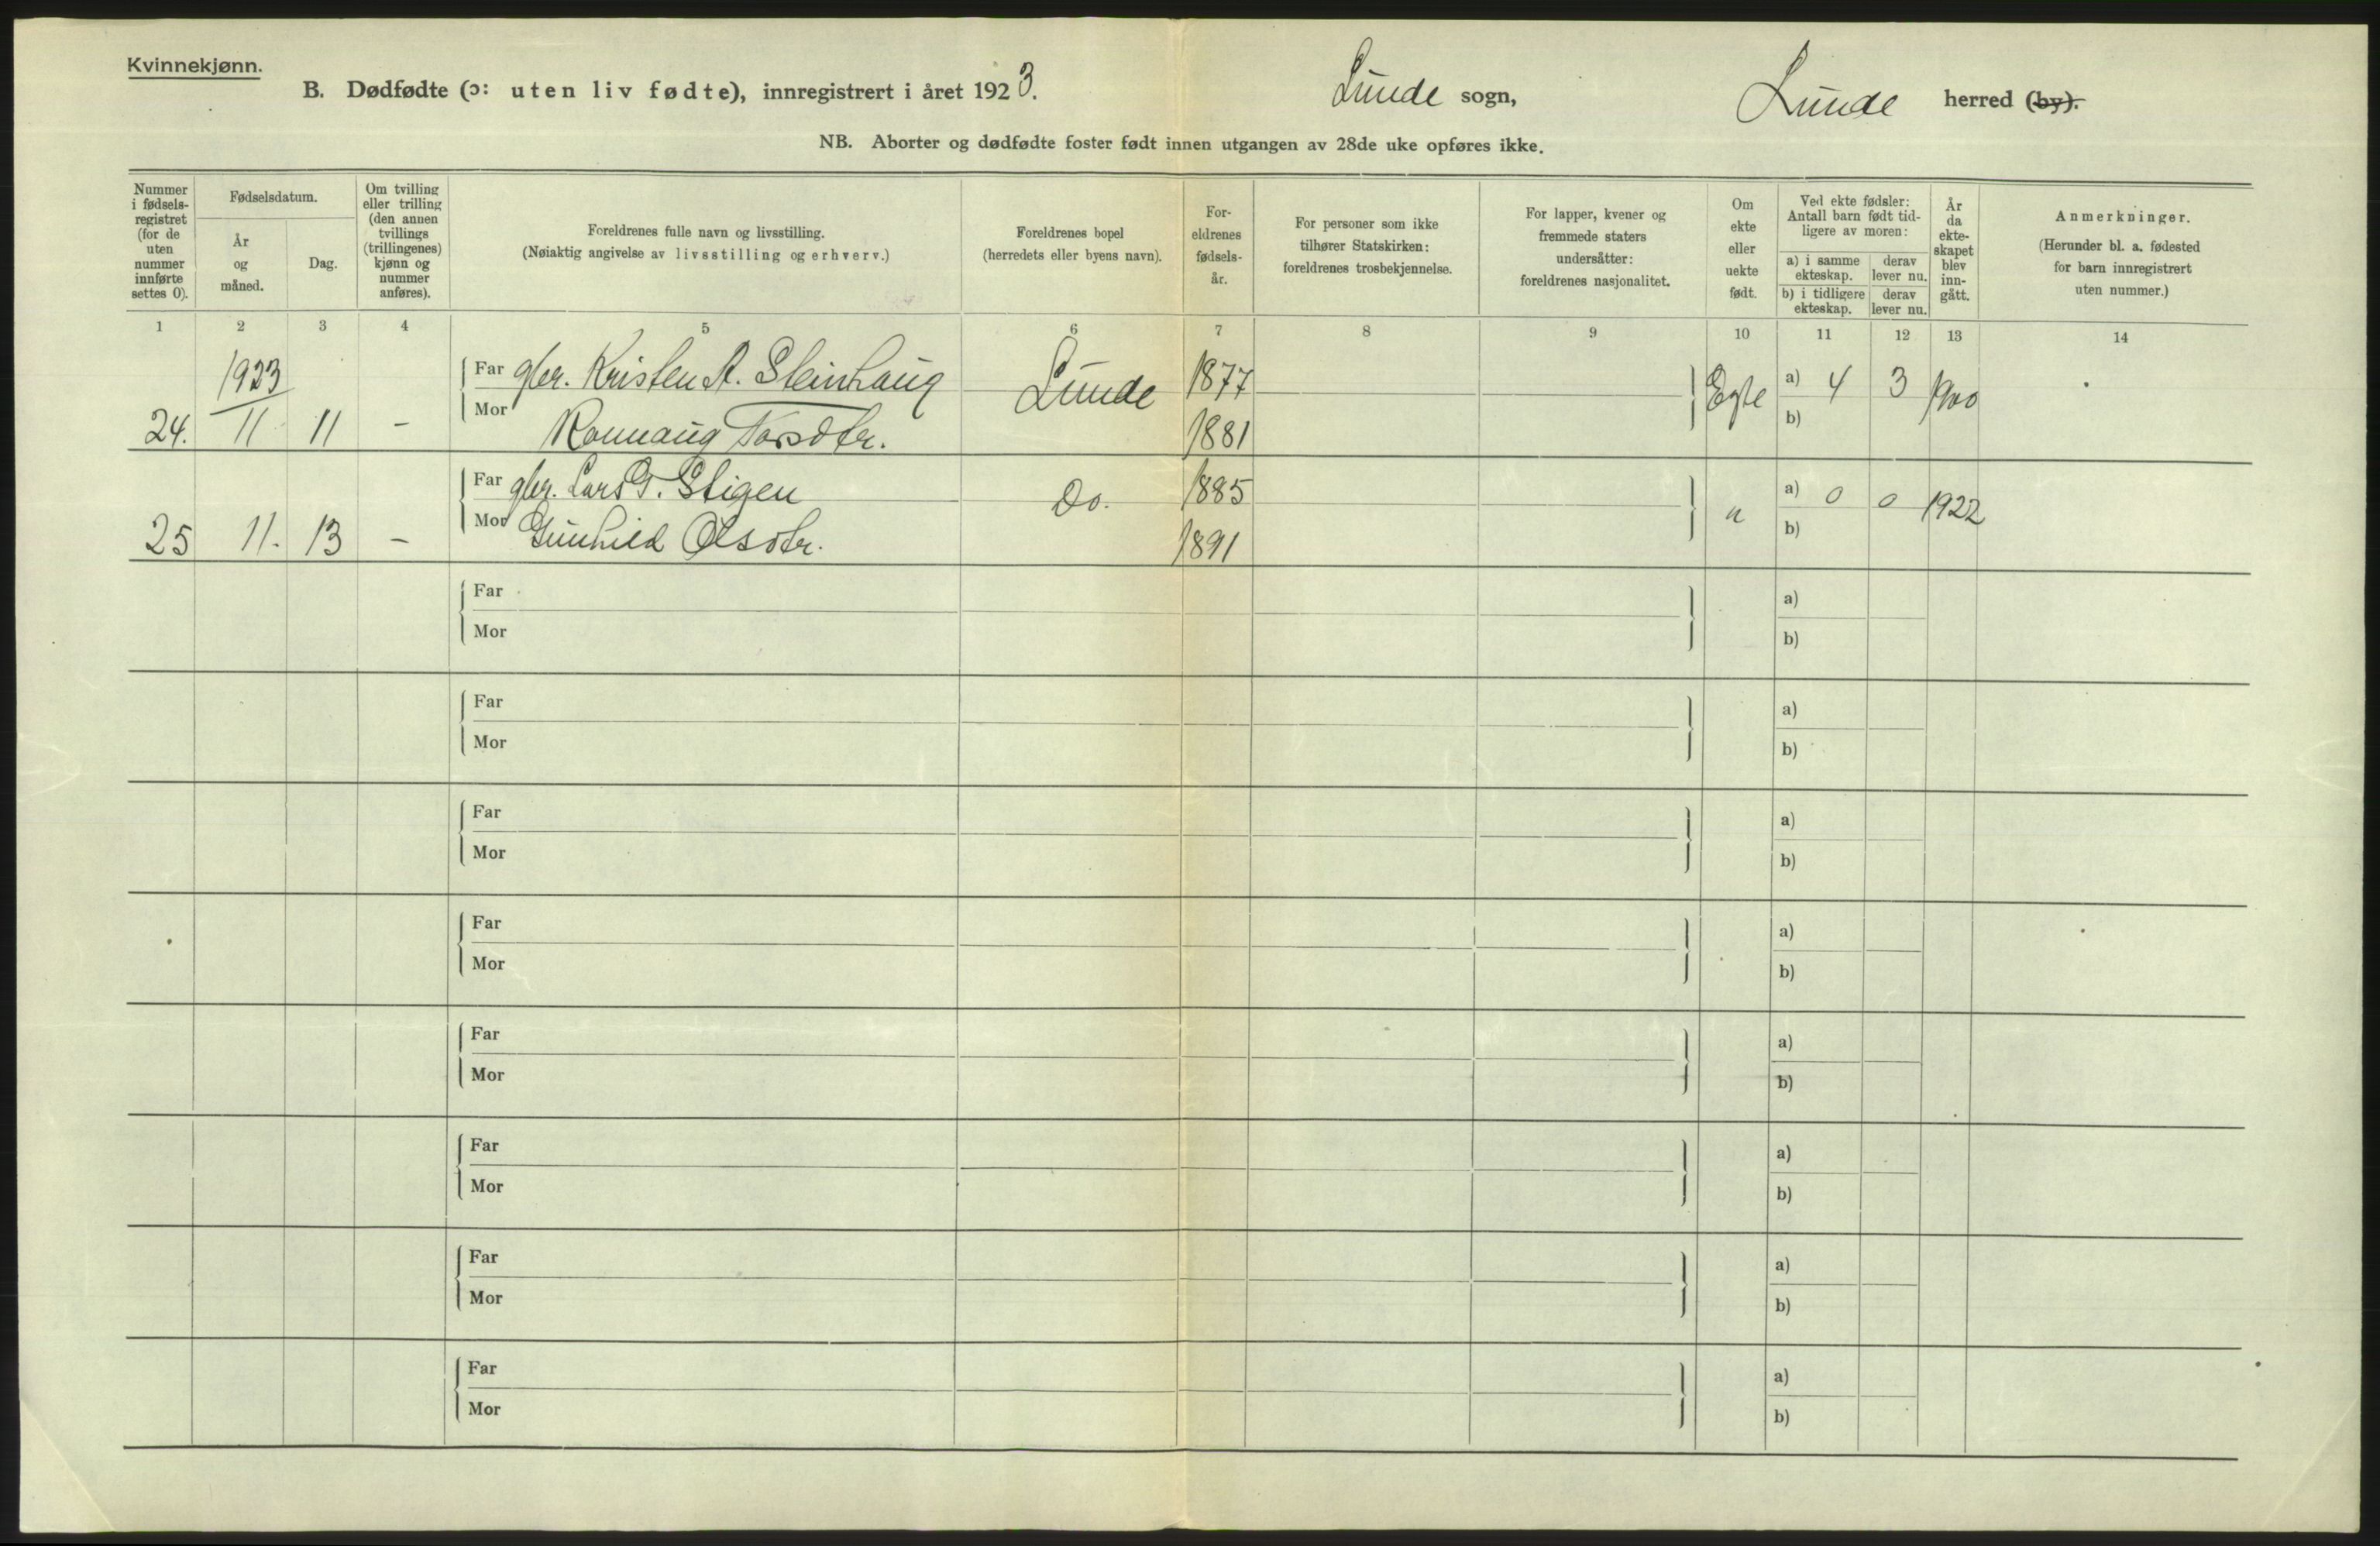 Kvinnekjønn.
B. Dødfødte (ɔ: uten liv fødte), innregistrert i året 1923. Lunde sogn, Lunde herred (by).
NB. Aborter og dødfødte foster født innen utgangen av 28de uke opføres ikke.
Nummer i fødsels- registret (for de uten nummer innførte settes 0).
Fødselsdatum.
År og måned.
Dag.
Om tvilling eller trilling (den annen tvillings (trillingenes) kjønn og nummer anføres).
Foreldrenes fulle navn og livsstilling.
(Nøiaktig angivelse av livsstilling og erhverv.)
Foreldrenes bopel
(herredets eller byens navn).
For- eldrenes fødsels- år.
For personer som ikke tilhører Statskirken: foreldrenes trosbekjennelse.
For lapper, kvener og fremmede staters undersåtter: foreldrenes nasjonalitet.
Om ekte eller uekte født.
Ved ekte fødsler: Antall barn født tid- ligere av moren:
a) i samme ekteskap. derav lever nu.
b) i tidligere ekteskap. derav lever nu.
År da ekte- skapet blev inn- gått.
Anmerkninger.
(Herunder bl. a. fødested for barn innregistrert uten nummer.)
1 2 3 4 5 6 7 8 9 10 11 12 13 14
1923
Far gbr. Kristen A. Steinhaug Lunde 1877 Egte a) 4 3 1900
24. 11 11 - Mor Ronnaug Torsdtr. 1881 b)
Far gbr. Lars T. Stigen Do. 1885 " a) 0 0 1922
25 11. 13 - Mor Gunhild Olsdtr. 1891 b)
Far a)
Mor b)
Far a)
Mor b)
Far a)
Mor b)
Far a)
Mor b)
Far a)
Mor b)
Far a)
Mor b)
Far a)
Mor b)
Far a)
Mor b)